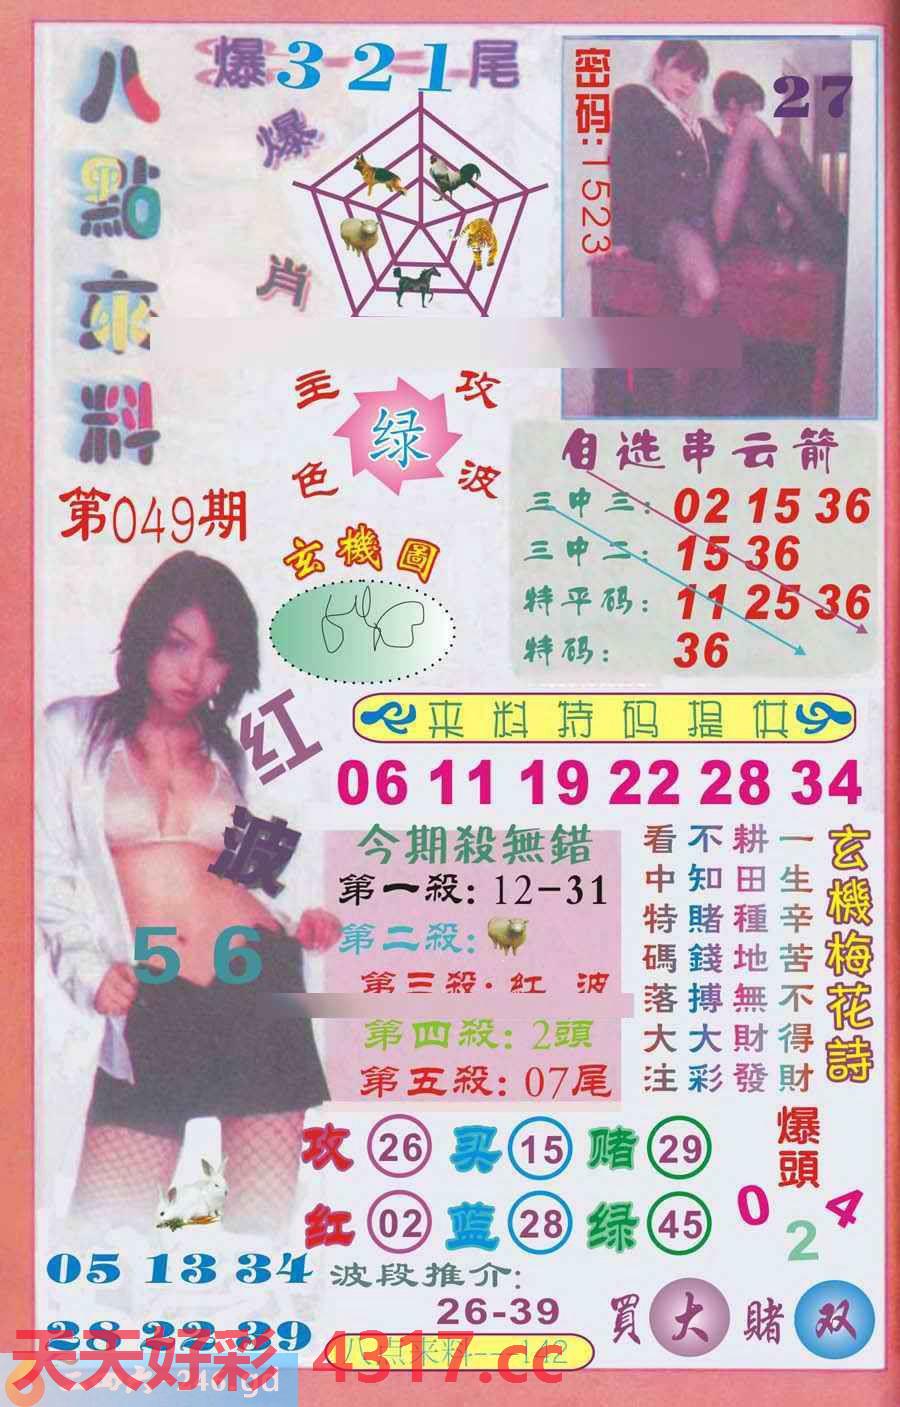 八點來料
爆321尾
爆肖
密码:1523
27
主攻
绿
色波
第049期
玄機圖
自选串云箭
三中三: 02 15 36
三中二: 15 36
特平码: 11 25 36
特码: 36
红波
56
来料特码提供
06 11 19 22 28 34
今期殺無錯
第一殺: 12-31
第二殺:
第三殺: 紅 波
第四殺: 2頭
第五殺: 07尾
玄機梅花詩
一生辛苦不得財
耕田種地無財發
不知賭錢搏大彩
看中特碼落大注
攻 26 买 15 赌 29
红 02 蓝 28 绿 45
爆頭
0 2 4
05 13 34
28 22 39
波段推介:
26-39
買大 賭双
八点来料---142
天天好彩 4317.cc